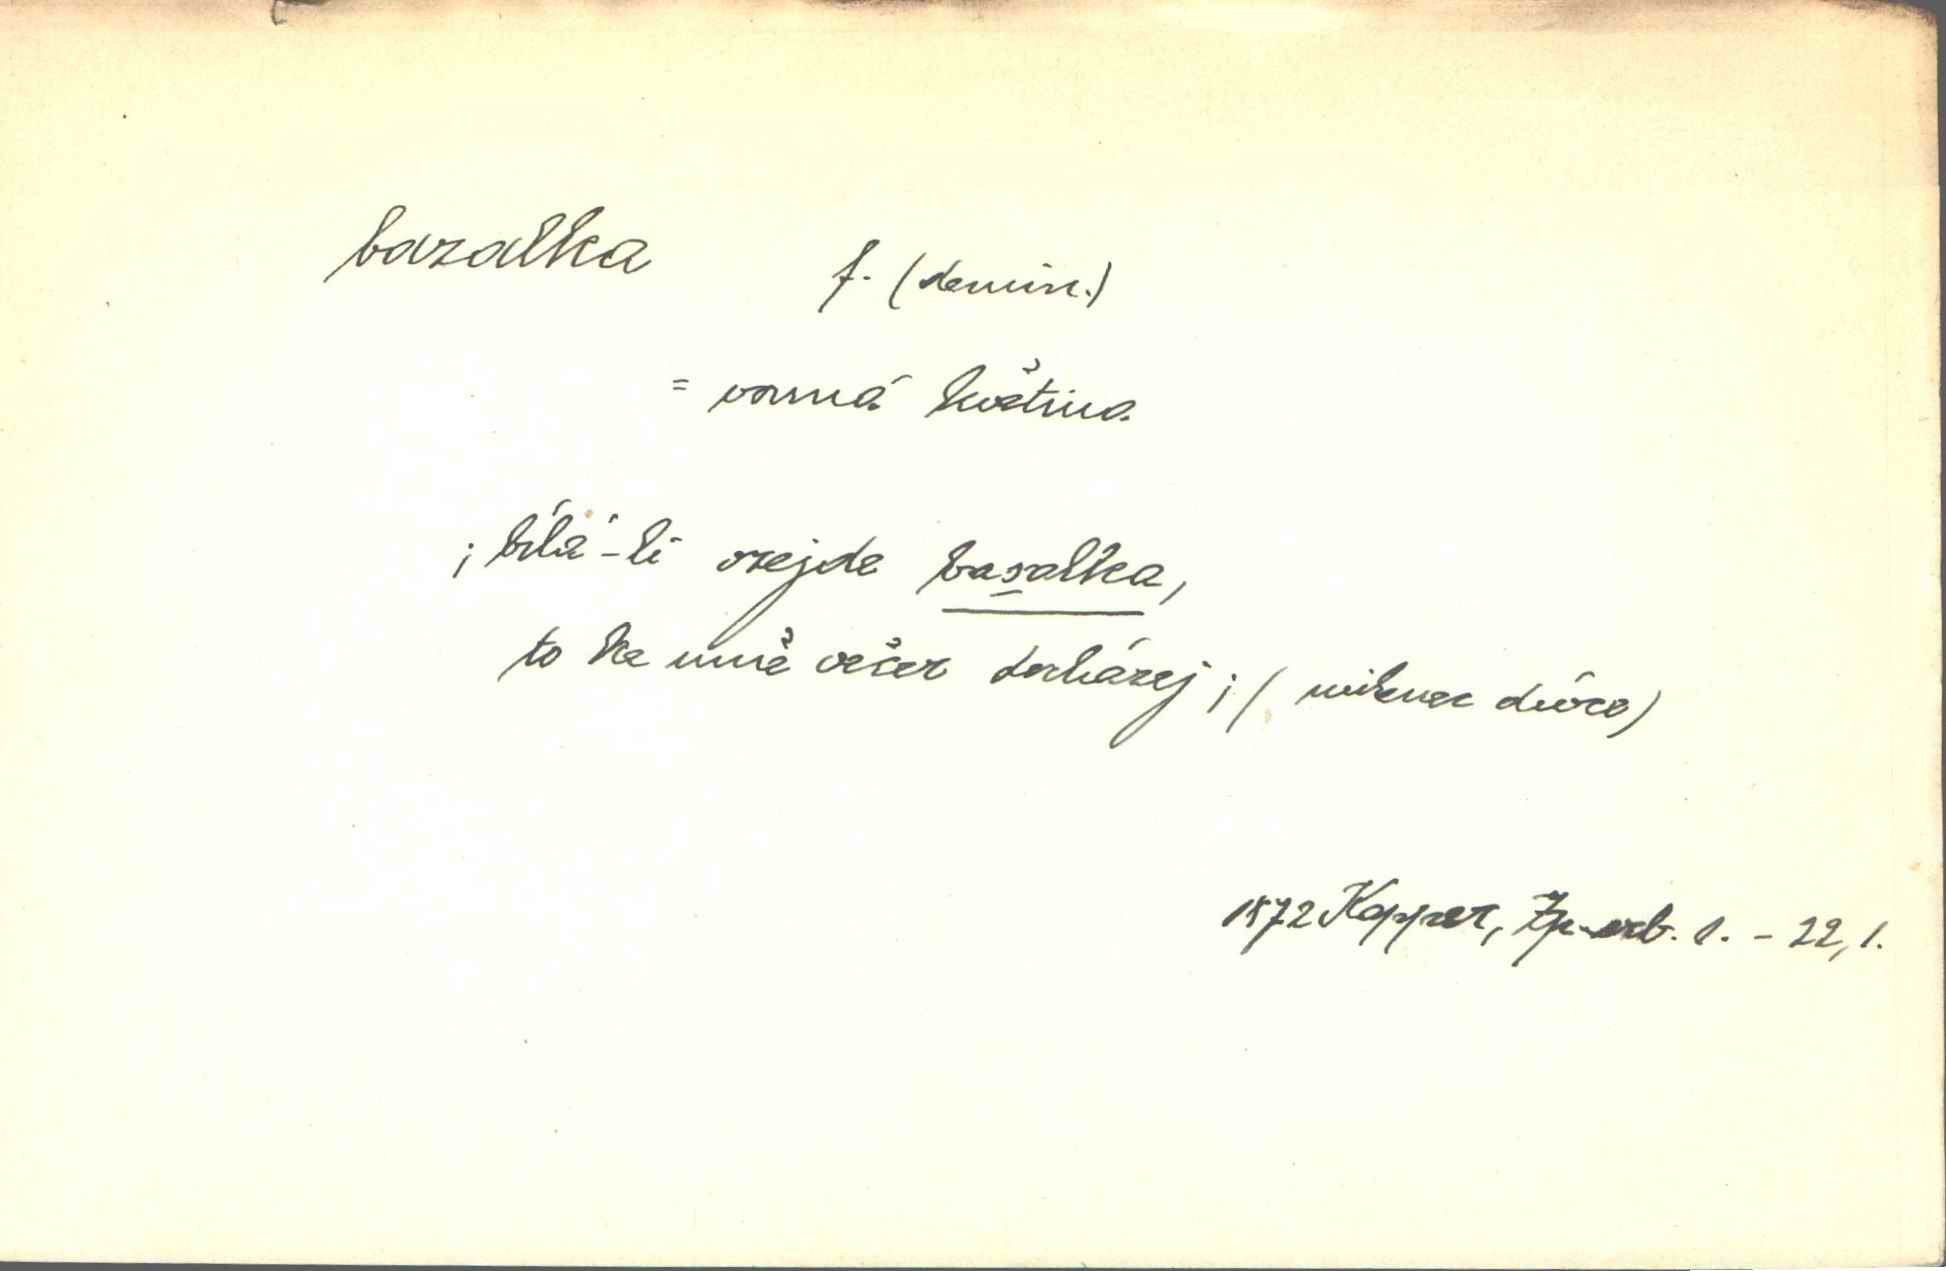 bazalka f. (demin.)
= vonná květina
; bílá-li vzejde basalka,
to ke mně večer docházej ; ( milenec dívce)
1872 Kapper, Zp. srb. 1. - 22, 1.